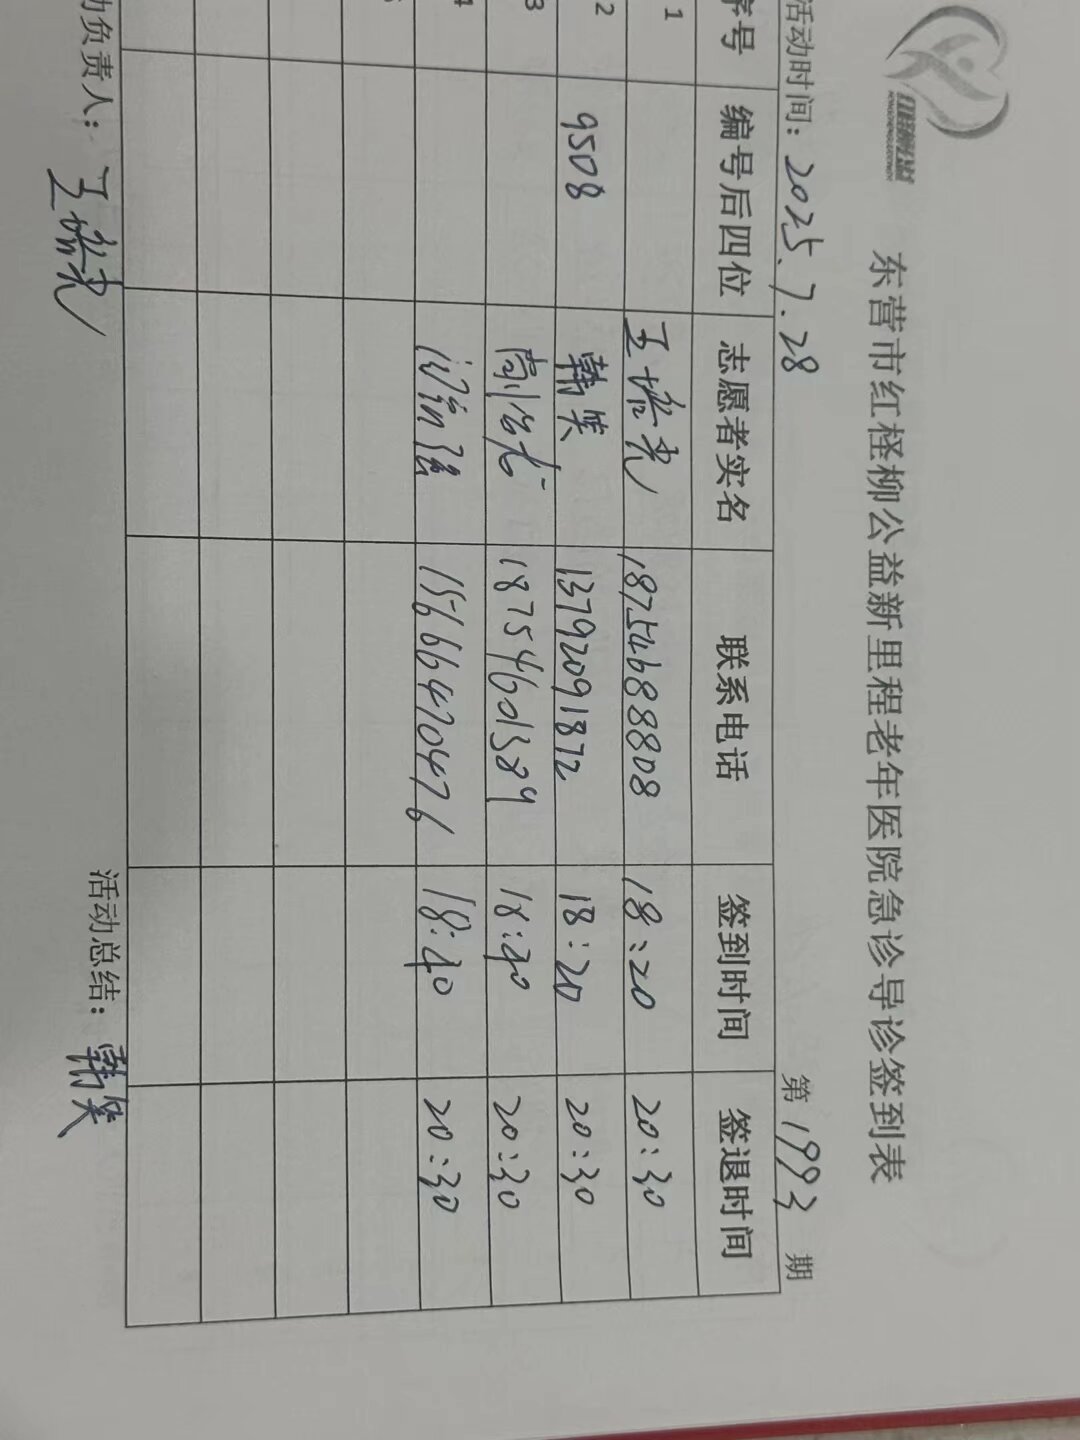 东营市红柽柳公益新里程老年医院急诊导诊签到表
活动时间：2025.7.28 第1993期
序号 编号后四位 志愿者实名 联系电话 签到时间 签退时间
1 18754688808 18:20 20:30
2 9508 韩笑 13792091872 18:20 20:30
3 18754601389 18:40 20:30
4 15666470476 18:40 20:30
动负责人： 活动总结：韩笑